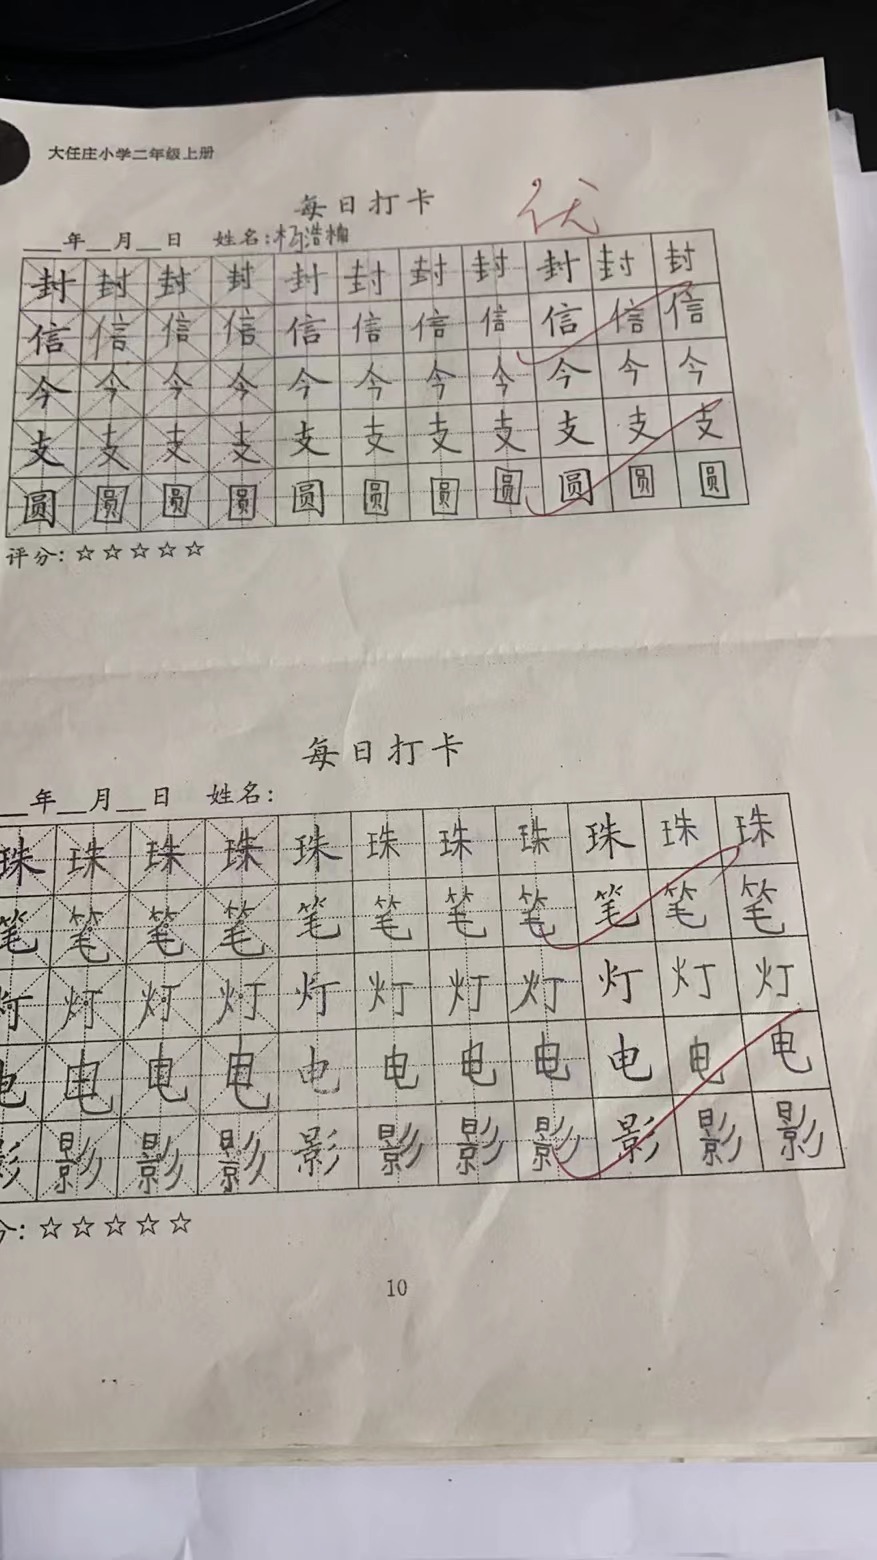 大任庄小学二年级上册
每日打卡
优
___年__月__日 姓名:杨浩楠
封封封封封封封封封封封
信信信信信信信信信信信
今今今今今今今今今今今
支支支支支支支支支支支
圆圆圆圆圆圆圆圆圆圆圆
评分:☆☆☆☆☆
每日打卡
__年__月__日 姓名:
珠珠珠珠珠珠珠珠珠珠珠
笔笔笔笔笔笔笔笔笔笔笔
灯灯灯灯灯灯灯灯灯灯灯
电电电电电电电电电电电
影影影影影影影影影影影
分:☆☆☆☆☆
10